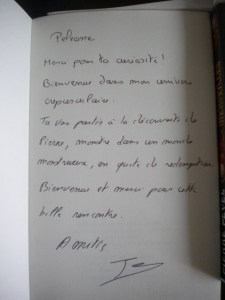 Merci pour ta curiosité !
Bienvenue dans mon univers
crépusculaire.
Tu vas partir à la découverte de
Pierre, monstre dans un monde
monstrueux, en quête de rédemption.
Bienvenue et merci pour cette
belle rencontre.
Amitiés